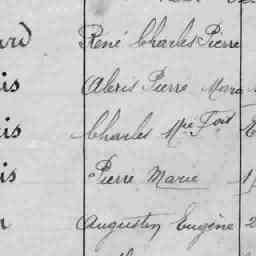 René Charles Pierre
is Alexis Pierre Marie
is Charles Mie Fois
is Pierre Marie
Augustin Eugène 2